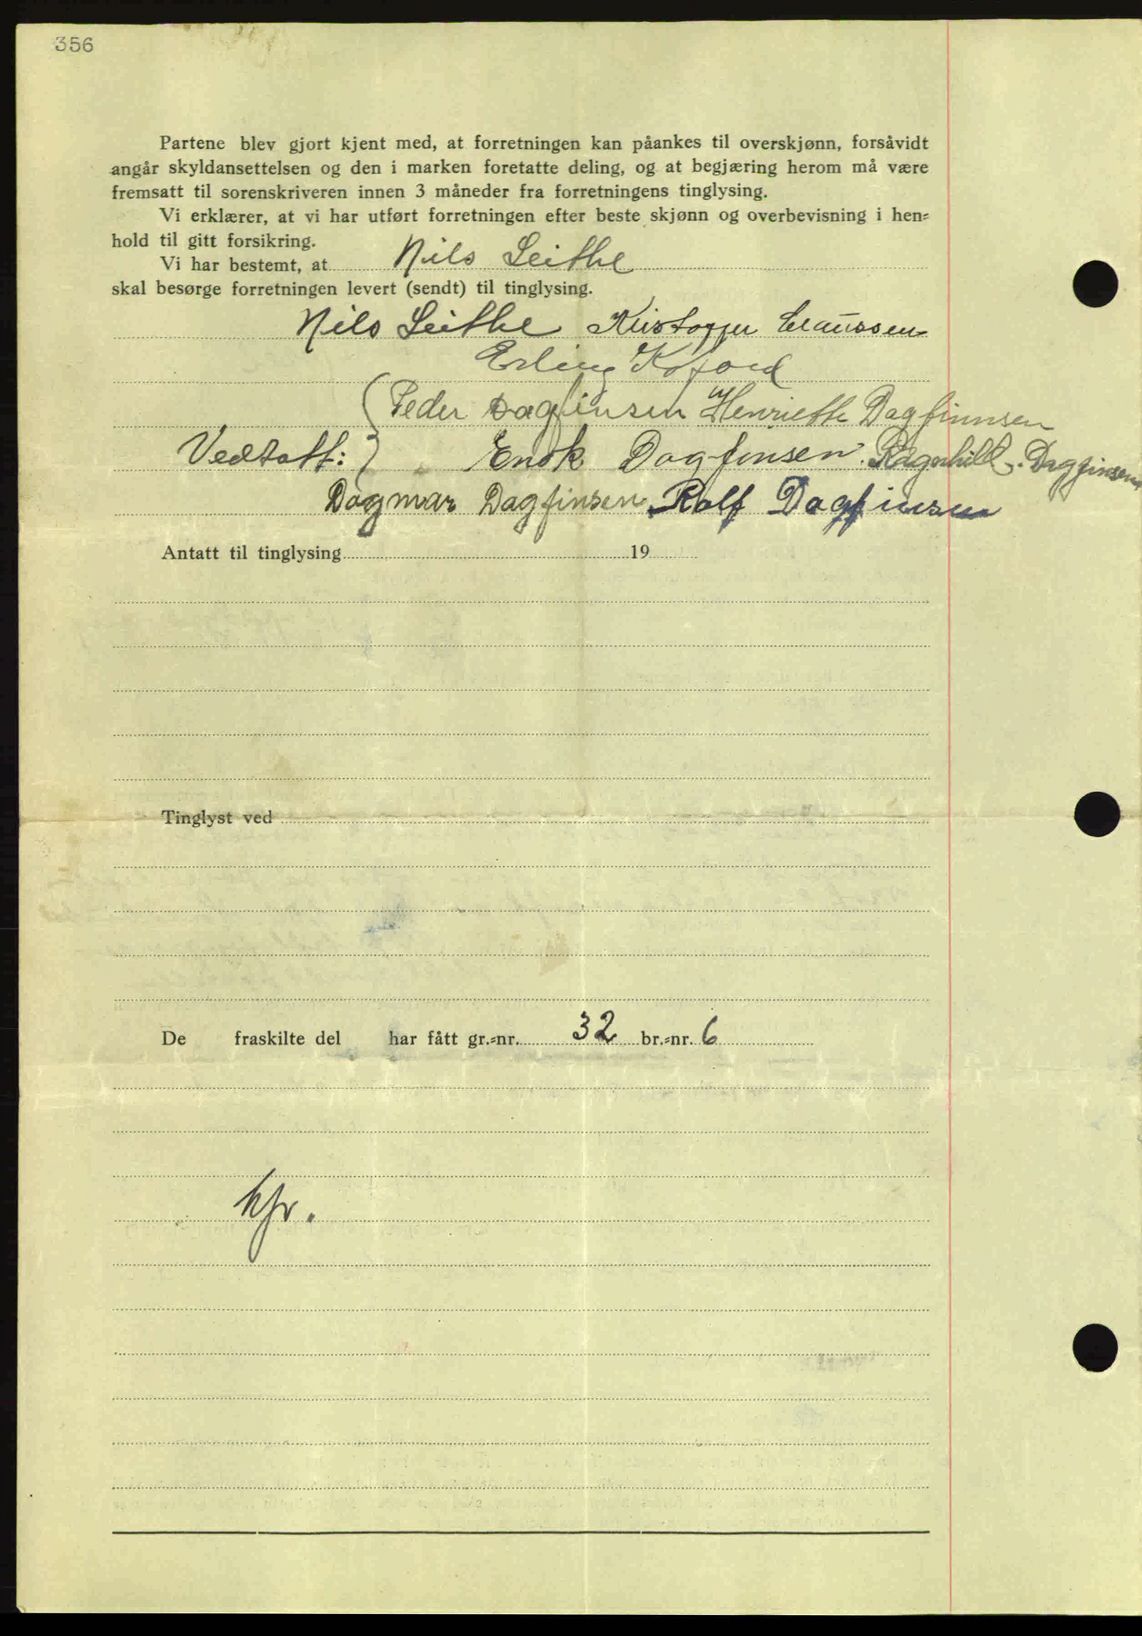 356
Partene blev gjort kjent med, at forretningen kan påankes til overskjønn, forsåvidt
angår skyldansettelsen og den i marken foretatte deling, og at begjæring herom må være
fremsatt til sorenskriveren innen 3 måneder fra forretningens tinglysing.
Vi erklærer, at vi har utført forretningen efter beste skjønn og overbevisning i hen-
hold til gitt forsikring.
Vi har bestemt, at Nils Leithe
skal besørge forretningen levert (sendt) til tinglysing.
Nils Leithe Kristoffer Claussen
Erling Kofoed
Peder Dagfinsen Henriette Dagfinnsen
Vedtatt: Enok Dagfinsen. Ragnhild. Dagfinsen
Dagmar Dagfinsen Rolf Dagfinsen
Antatt til tinglysing 19
Tinglyst ved
De fraskilte del har fått gr.-nr. 32 br.-nr. 6